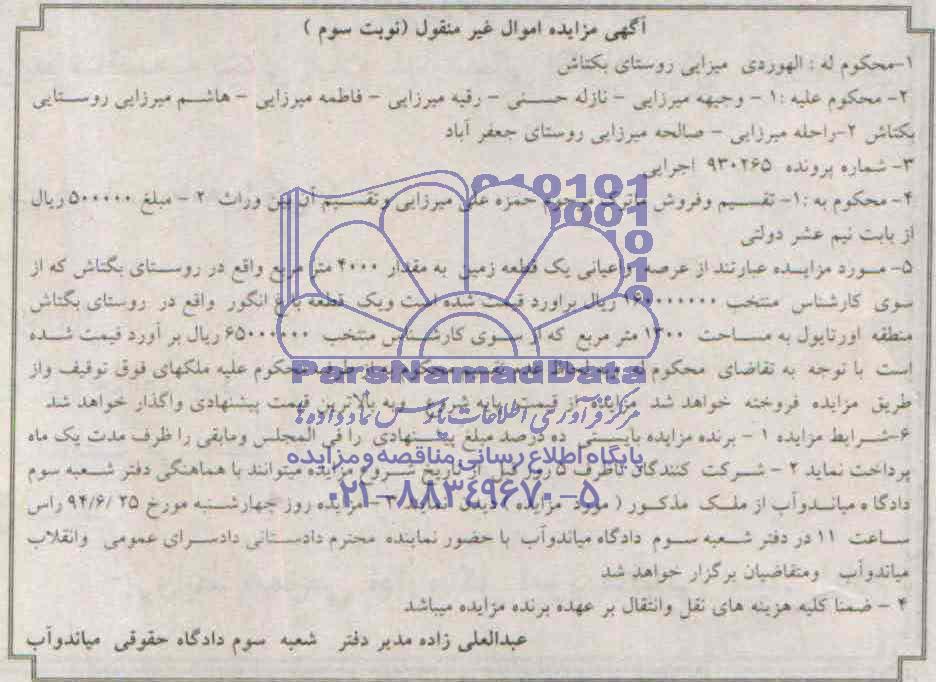 آگهی مزایده اموال غیر منقول (نوبت سوم )
۱-محکوم له : الهوردی میزایی روستای بکتاش
۲- محکوم علیه :۱ - وجیهه میرزایی - نازله حسنی - رقیه میرزایی - فاطمه میرزایی - هاشم میرزایی روستایی
بکتاش ۲-راحله میرزایی - صالحه میرزایی روستای جعفر آباد
۳- شماره پرونده ۹۳۰۲۶۵ اجرایی
۴- محکوم به :۱- تقسیم وفروش ماترک مرحوم حمزه علی میرزایی وتقسیم آن بین وراث ۲ - مبلغ ۵۰۰۰۰۰ ریال
از بابت نیم عشر دولتی
۵- مورد مزایده عبارتند از عرصه واعیانی یک قطعه زمین به مقدار ۴۰۰۰ متر مربع واقع در روستای بگتاش که از
سوی کارشناس منتخب ۱۶۰۰۰۰۰۰۰ ریال براورد قیمت شده است ویک قطعه باغ انگور واقع در روستای بگتاش
منطقه اورتایول به مساحت ۱۳۰۰ متر مربع که از سوی کارشناس منتخب ۶۵۰۰۰۰۰۰ ریال بر آورد قیمت شده
است با توجه به تقاضای محکوم له وبه لحاظ عدم تقسیم محکوم به از طرف محکوم علیه ملکهای فوق توقیف واز
طریق مزایده فروخته خواهد شد مزایده از قیمت پایه شروع وبه بالاترین قیمت پیشنهادی واگذار خواهد شد
۶-شرایط مزایده ۱ - برنده مزایده بایستی ده درصد مبلغ پیشنهادی را فی المجلس ومابقی را ظرف مدت یک ماه
پرداخت نماید ۲ - شرکت کنندگان ظرف ۵ روز قبل از تاریخ شروع مزایده میتوانند با هماهنگی دفتر شعبه سوم
دادگاه میاندوآب از ملک مذکور ( مورد مزایده ) دیدن نمایند ۳ - مزایده روز چهارشنبه مورخ ۹۴/۶/۲۵ راس
ساعت ۱۱ در دفتر شعبه سوم دادگاه میاندوآب با حضور نماینده محترم دادستانی دادسرای عمومی وانقلاب
میاندوآب ومتقاضیان برگزار خواهد شد
۴ - ضمنا کلیه هزینه های نقل وانتقال بر عهده برنده مزایده میباشد
عبدالعلی زاده مدیر دفتر شعبه سوم دادگاه حقوقی میاندوآب
ParsNamadData
مرکز فرآوری اطلاعات پارس نماد داده ها
پایگاه اطلاع رسانی مناقصه و مزایده
۰۲۱-۸۸۳۴۹۶۷۰-۵